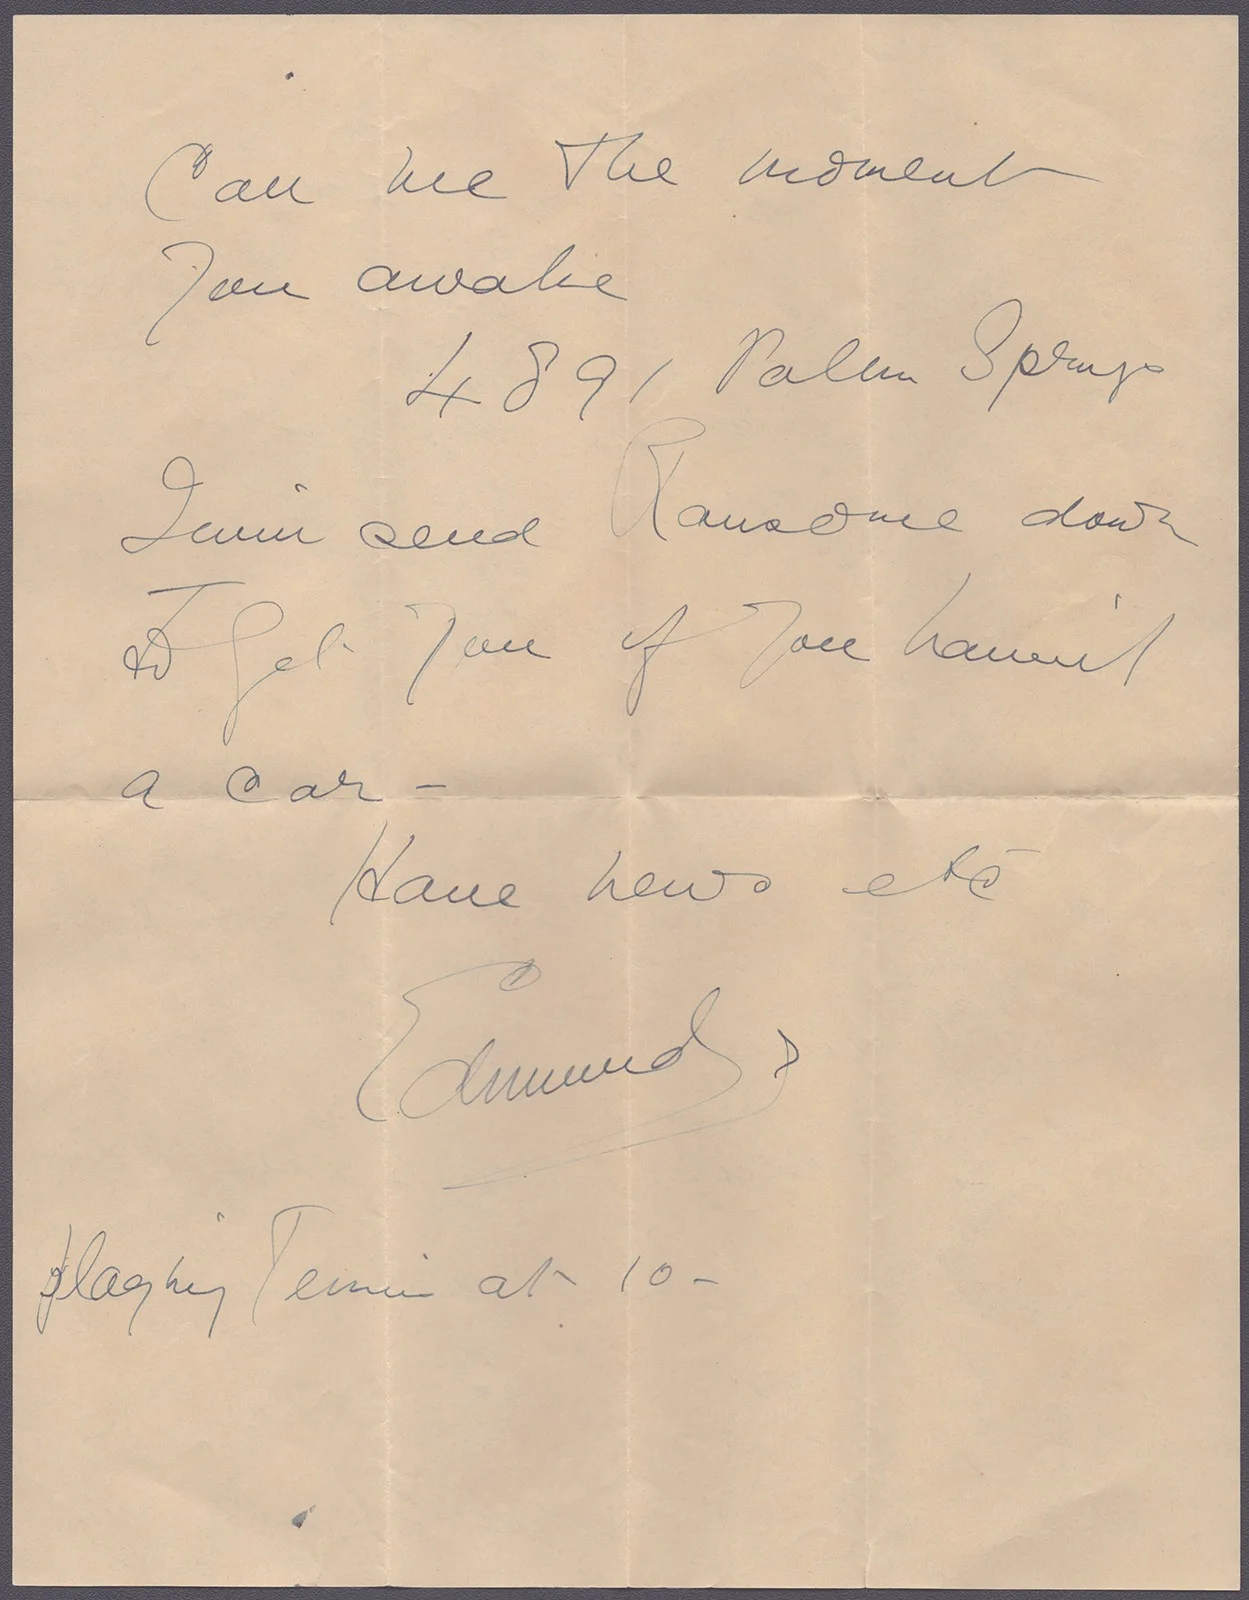 Call me the moment
You awake
4891 Palm Springs
I will send Ransome down
to get you if you haven't
a car -
Have news etc
Edmund
playing Tennis at 10 -